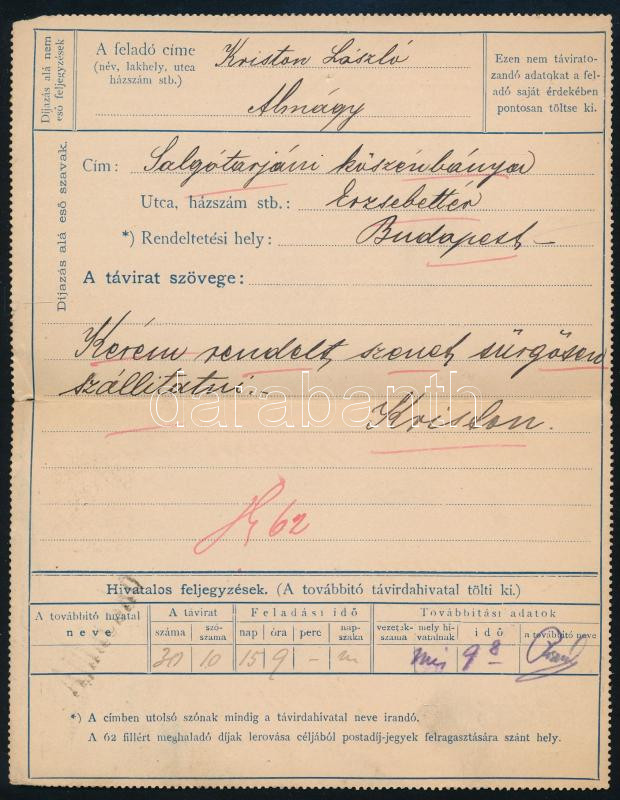 Díjazás alá nem
eső feljegyzések
A feladó címe
(név, lakhely, utca
házszám stb.)
Kriston László
Almágy
Ezen nem távirato-
zandó adatokat a fel-
adó saját érdekében
pontosan töltse ki.
Díjazás alá eső szavak.
Cím: Salgótarjáni kőszénbánya
Utca, házszám stb.: Erzsebettér
*) Rendeltetési hely: Budapest
A távirat szövege:
Kérem rendelt szenet sürgősen
szállitatni.
Kriston.
62
darabanth
Hivatalos feljegyzések. (A továbbitó távirdahivatal tölti ki.)
A továbbitó hivatal
neve
A távirat
száma
szó-
száma
Feladási idő
nap
óra
perc
nap-
szaka
Továbbitási adatok
vezeték-
száma
mely hi-
vatalnak
idő
a továbbitó neve
30 10 15 9 - m 9 8
*) A címben utolsó szónak mindig a távirdahivatal neve irandó.
A 62 fillért meghaladó díjak lerovása céljából postadíj-jegyek felragasztására szánt hely.